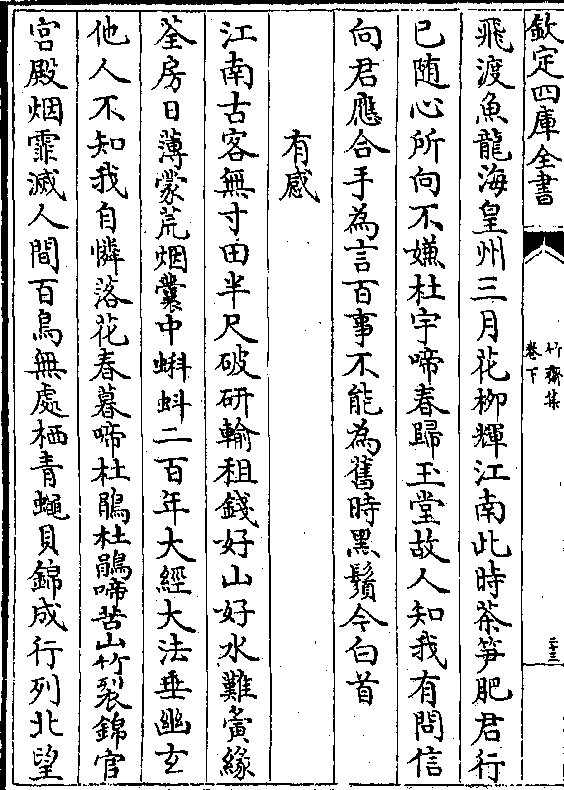 欽定四庫全書
竹齋集
卷下
二十三
飛渡魚龍海皇州三月花柳輝江南此時茶笋肥君行
已随心所向不嫌杜宇啼春歸玉堂故人知我有問信
向君應合手為言百事不能為舊時黑鬚今白首
有感
江南古客無寸田半尺破研輸租錢好山好水難夤緣
荃房日薄蒙荒烟囊中蝌蚪二百年大經大法垂幽玄
他人不知我自憐落花春暮啼杜鵑杜鵑啼苦山竹裂錦官
宫殿烟霏滅人間百鳥無處栖青蠅貝錦成行列北望